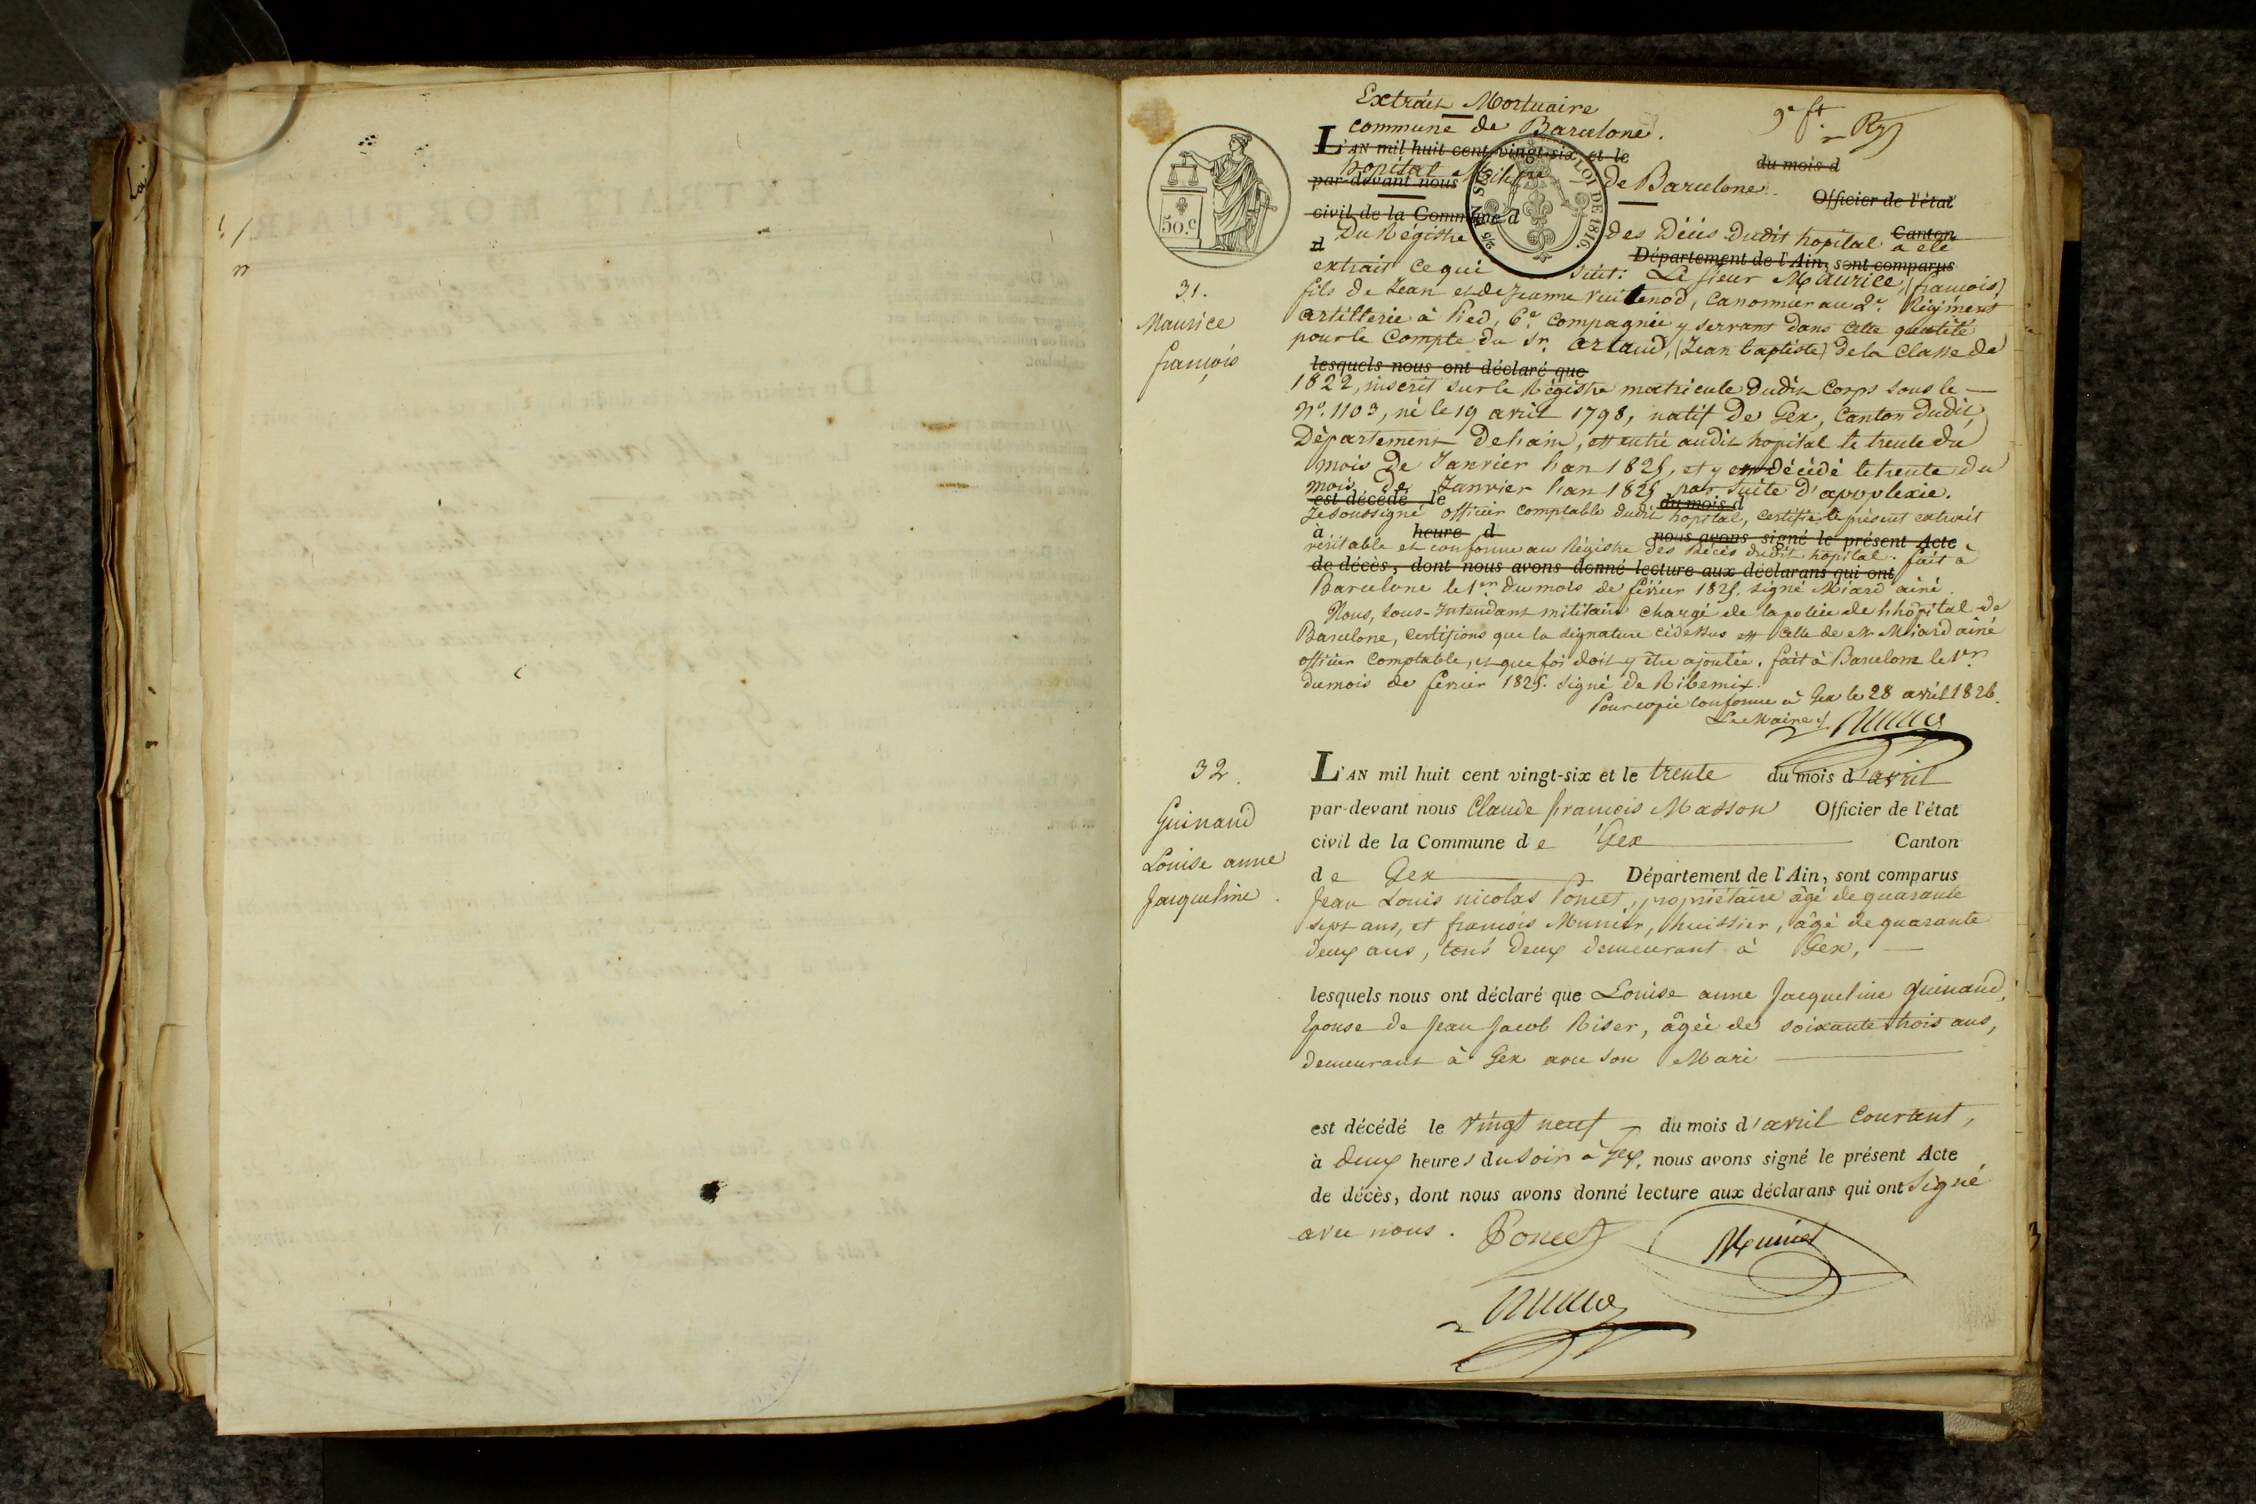 Extrait Mortuaire
commune de Barcelone.
9e ft.
L'AN mil huit cent vingt-six et le
du mois d
hopital Militre de Barcelone
par-devant nous
Officier de l'état
civil de la Commune d
Du Régistre des Décès dudit hopital a été
d
Canton
Département de l'Ain, sont comparus
50.c
LOI DE 1816.
extrait ce qui suit: Le sieur Maurice, (françois)
31.
Maurice
françois
fils de Jean et de Jeanne Vuillenod, Canonnier au 2e. Régiment
artillerie à Pied, 6e. Compagnie y servant dans cette qualité
pour le Compte du Sr. Artaud, (Jean baptiste) de la Classe de
lesquels nous ont déclaré que
1822, inscrit sur le Régistre matricule dudit Corps sous le
no. 1103, né le 19 avril 1798, natif de Gex, Canton dudit,
Département de l'ain, est entré audit hopital le trente du
mois de Janvier l'an 1825, et y est décédé le trente du
mois de Janvier l'an 1825 par suite d'apoplexie.
est décédé le
du mois d
Je soussigné officier comptable dudit hopital, certifie le présent extrait
à heure d nous avons signé le présent Acte
véritable et conforme au Régistre des décès dudit hopital. fait à
de décès, dont nous avons donné lecture aux déclarans qui ont
Barcelone le 1er. du mois de février 1825. signé Miard ainé.
Nous, Sous-Intendant militaire chargé de la police de l'hôpital de
Barcelone, certifions que la signature cidessus est celle de Mr Miard ainé
officier Comptable, et que foi doit y être ajoutée. fait à Barcelone le 1er.
du mois de février 1825. signé de Ribemix.
Pour copie conforme à Gex le 28 avril 1826.
Le Maire
32.
Guinand
Louise anne
Jacqueline.
L'AN mil huit cent vingt-six et le trente du mois d'avril
par-devant nous Claude françois Masson Officier de l'état
civil de la Commune de Gex Canton
de Gex Département de l'Ain, sont comparus
Jean Louis nicolas Poncet, propriétaire âgé de quarante
sept ans, et françois Munier, huissier, âgé de quarante
deux ans, tous deux demeurant à Gex,
lesquels nous ont déclaré que Louise anne Jacqueline guinand,
épouse de Jean Jacob Riser, âgée de soixante trois ans,
demeurant à Gex avec son Mari
est décédé le vingt neuf du mois d'avril Courant,
à deux heures du soir à Gex, nous avons signé le présent Acte
de décès, dont nous avons donné lecture aux déclarans qui ont signé
avec nous. Poncet Munier